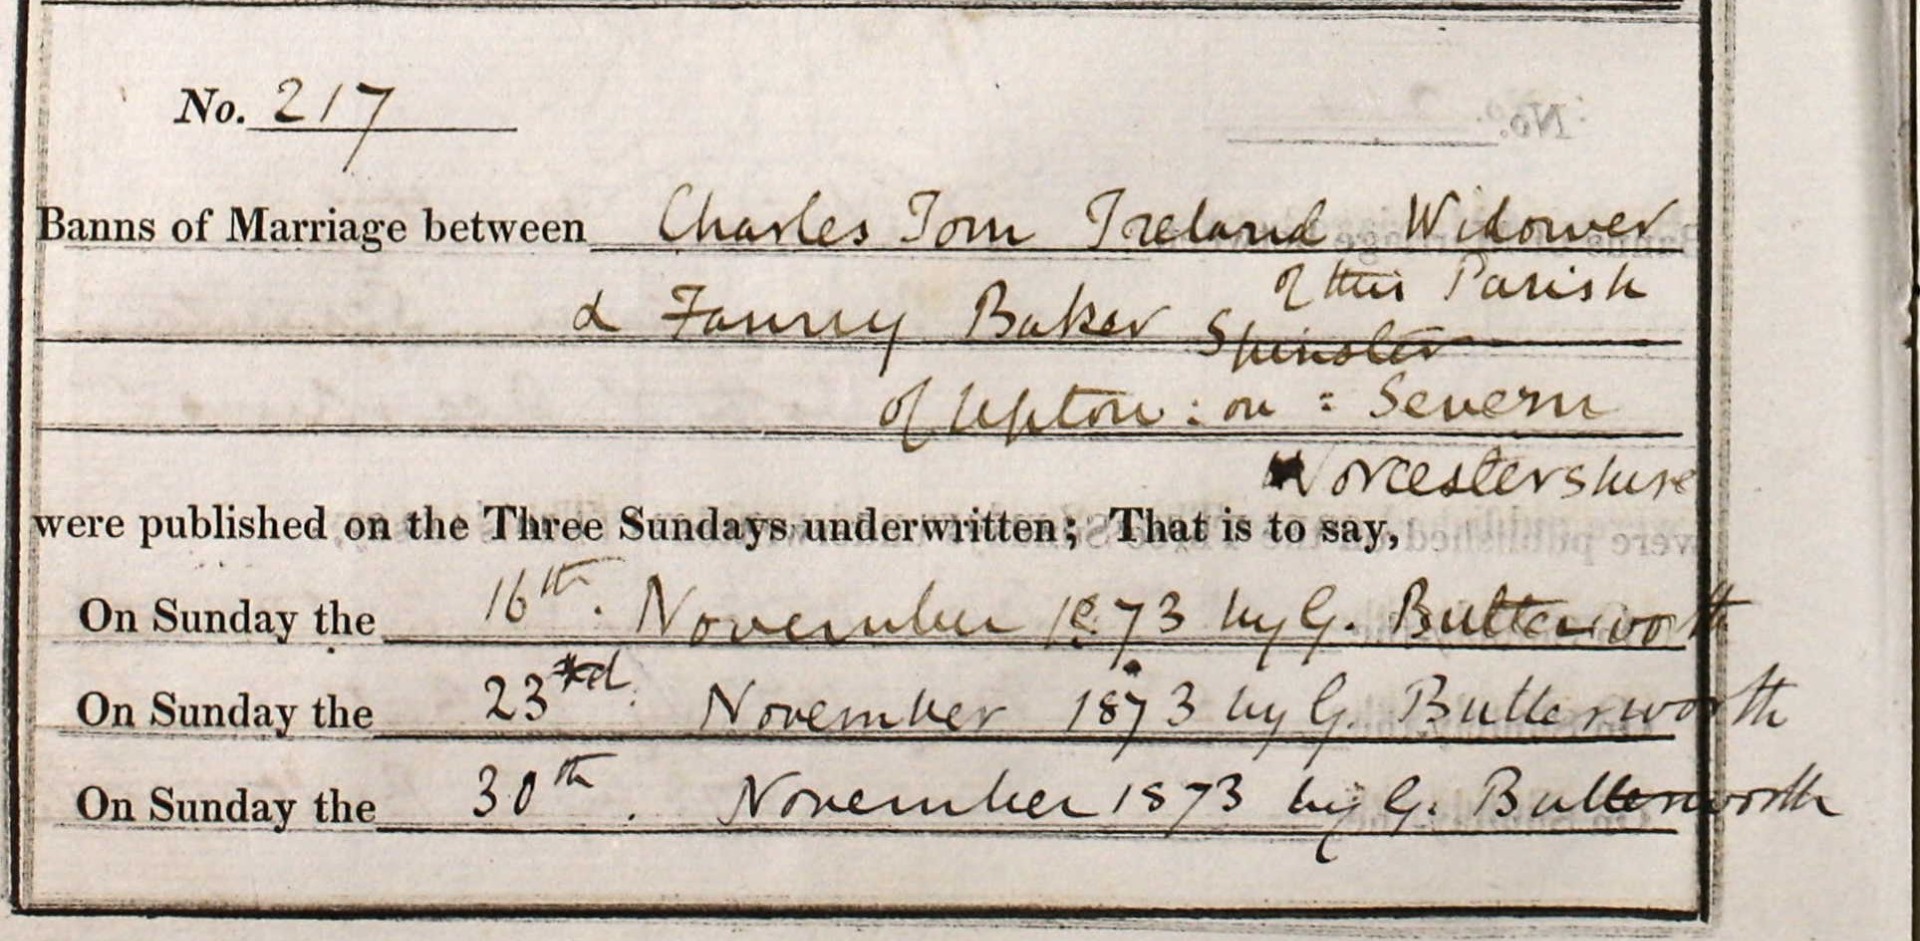 No. 217
Banns of Marriage between Charles Tom Ireland Widower
of this Parish
& Fanny Baker Spinster
of Upton : on = Severn
Worcestershire
were published on the Three Sundays underwritten; That is to say,
On Sunday the 16th. November 1873 by G. Butterworth
On Sunday the 23rd. November 1873 by G. Butterworth
On Sunday the 30th. November 1873 by G. Butterworth